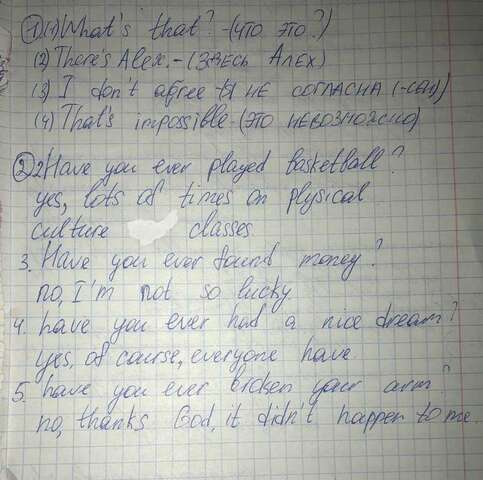 ① (1) What's that? - (ЧТО ЭТО?)
(2) There's Alex. - (ЗДЕСЬ АЛЕХ)
(3) I don't agree - (Я НЕ СОГЛАСНА (-СЕН))
(4) That's impossible - (ЭТО НЕВОЗМОЖНО)
② 2 Have you ever played basketball?
yes, lots of times on physical
culture classes.
3. Have you ever found money?
no, I'm not so lucky
4. have you ever had a nice dream?
yes, of course, everyone have
5. have you ever broken your arm?
no, thanks God, it didn't happen to me.